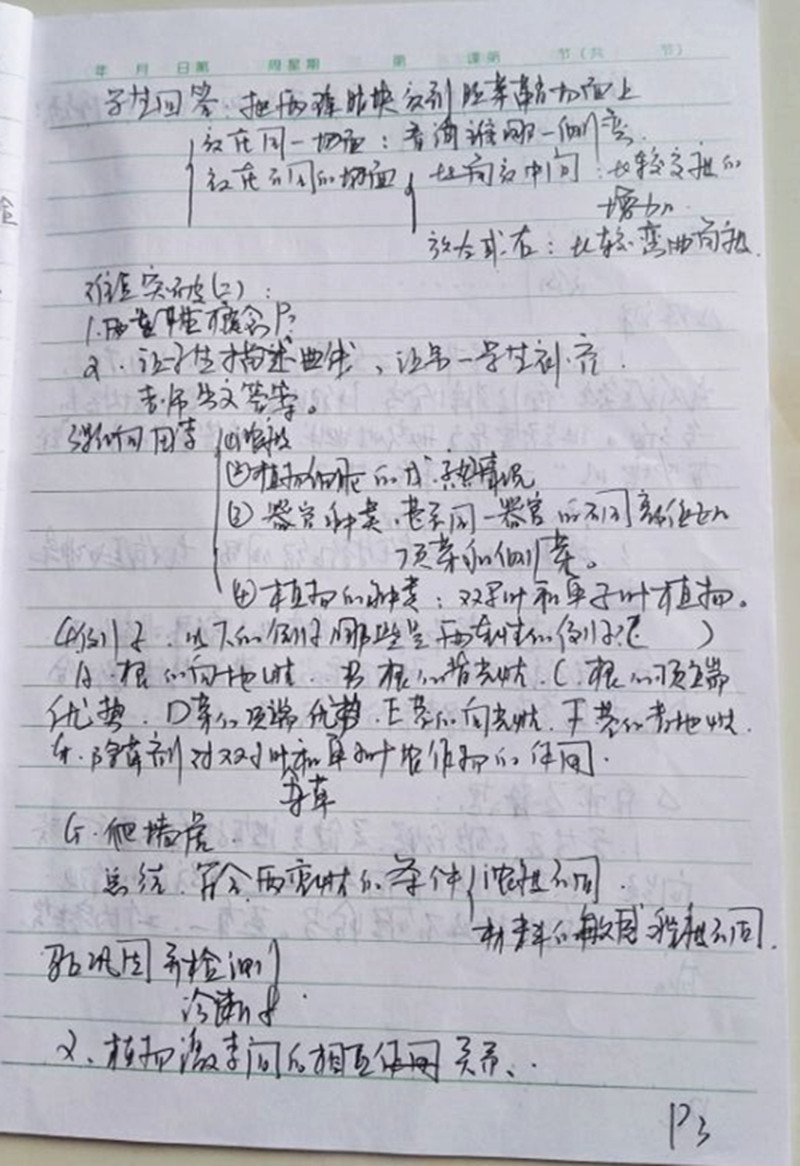 年 月 日第 周星期 第 课第 节(共 节)
学生回答:把两琼脂块分别胚芽鞘切面上
放在同一切面:看清谁哪一侧弯
放在不同的切面 如向放中间:比较交担的
增加
放左或右:比较弯曲角度.
难点突破(二):
1.两重性概念P
2.让学生描述曲线、让另一学生补充
老师出文答案。
影响因素 ①浓度
②植物细胞的成熟情况
③器官种类,甚至同一器官的不同部位如
顶芽和侧芽。
④植物的种类:双子叶和单子叶植物。
(4)例子:以下的例子哪些是两重性的例子( )
A.根的向地性.B根的背光性.C.根的顶端
优势.D茎的顶端优势.E茎的向光性.F茎的背地性.
G.除草剂对双子叶和单子叶农作物的作用.
杂草
G.爬墙虎.
总结:符合两重性的条件 浓度不同.
材料的敏感程度不同.
巩固并检测
2、植物激素间的相互作用关系、.
P3